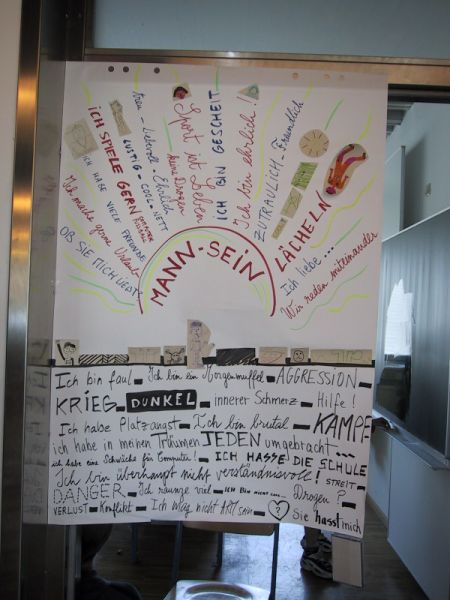 OB SIE MICH LIEBT?
Ich mache gerne Urlaub
ICH HABE VIELE FREUNDE
ICH SPIELE GERN
LUSTIG - COOL - NETT
treu - Liebevoll - Ehrlich
keine Drogen
Sport ist Leben
ICH BIN GESCHEIT
Ich bin ehrlich!
ZUTRAULICH - Freundlich
LÄCHELN
Ich liebe ...
Wir reden miteinander
MANN-SEIN
Ich bin faul - Ich bin ein Morgenmuffel - AGGRESSION -
KRIEG - DUNKEL - innerer Schmerz - Hilfe!
Ich habe Platzangst - Ich bin brutal - KAMPF
ich habe in meinen Träumen JEDEN umgebracht...
ich habe eine Schwäche für Computer! - ICH HASSE DIE SCHULE
Ich bin überhaupt nicht verständnisvoll! STREIT -
DANGER - Ich raunze viel - ICH BIN NICHT COOL... Drogen?
VERLUST - Konflikt - Ich mag nicht ALT sein - ? Sie hasst mich